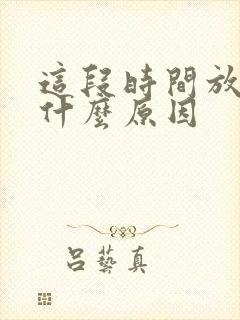 這段時間放
什麼原因
呂藝真